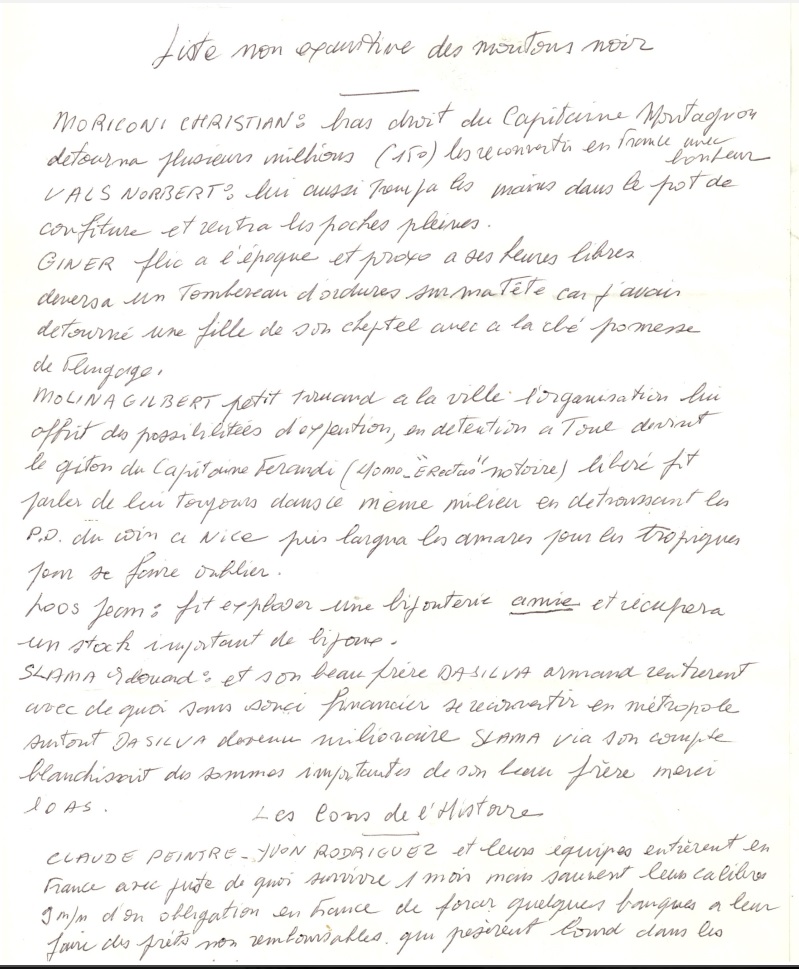 Liste non exaustive des moutons noir
MORICONI CHRISTIAN: bras droit du Capitaine Montagnon
detourna plusieurs millions (150) les reconvertir en France avec
bonheur
VALS NORBERT: lui aussi trempa les mains dans le pot de
confiture et rentra les poches pleines.
GINER flic a l'époque et proxo a ses heures libres
deversa un Tombereau d'ordures sur ma Tête car j'avais
detourné une fille de son cheptel avec a la clé promesse
de flingage.
MOLINA GILBERT petit truand a la ville l'organisation lui
offrit des possibilitées d'expention, en detention a Toul devint
le giton du Capitaine Ferandi (Homo-"Erectus" notoire) libéré fit
parler de lui toujours dans le même milieu en detroussant les
P.D. du coin a Nice puis largua les amares pour les tropiques
pour se faire oublier.
LOOS Jean: fit exploser une bijouterie amie et récupera
un stock important de bijoux.
SLAMA Edouard: et son beau frère DASILVA armand rentrerent
avec de quoi sans souci financier se reconvertir en métropole
surtout DASILVA devenu milionaire SLAMA via son compte
blanchissait des sommes importantes de son beau frère merci
l'OAS.
Les Cons de l'Histoire
CLAUDE PEINTRE - YVON RODRIGUEZ et leurs équipes entrèrent en
France avec juste de quoi survivre 1 mois mais sauvent leurs calibres
9 m/m d'ou obligation en France de forcer quelques banques a leur
faire des prêts non remboursables. qui pesèrent lourd dans les